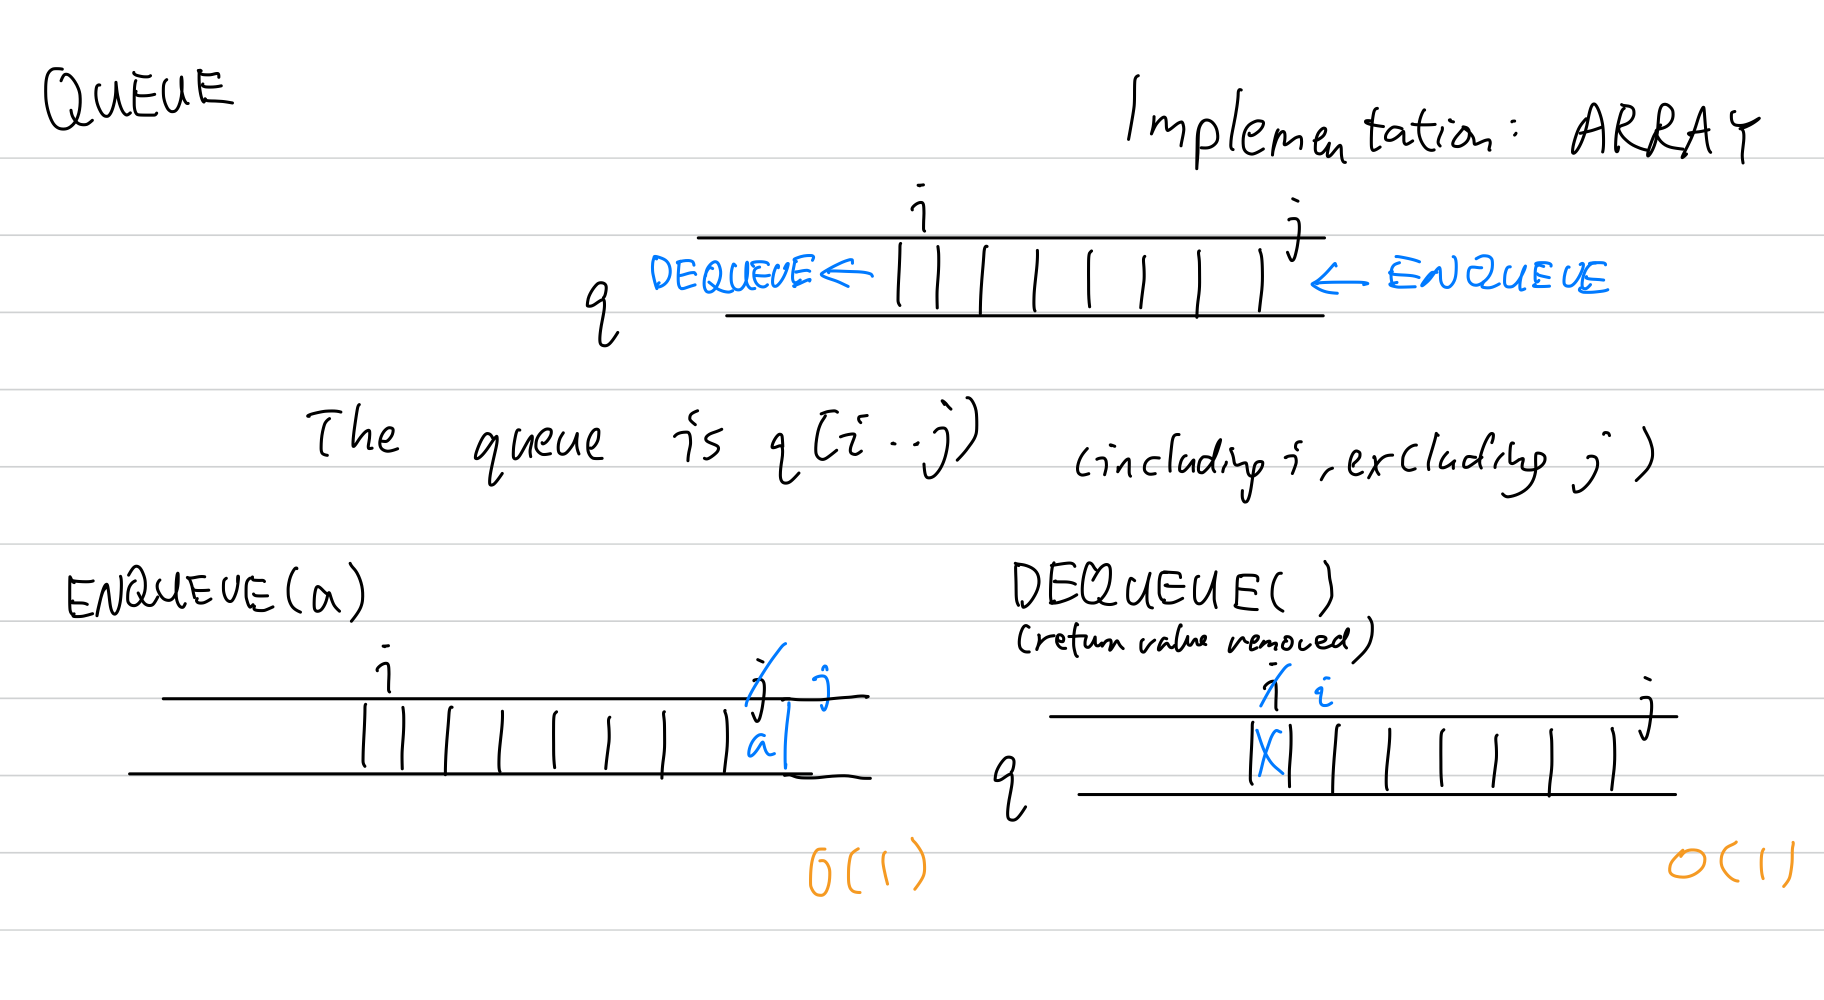 QUEUE
Implementation: ARRAY
i j
q DEQUEUE ← ← ENQUEUE
The queue is q[i..j) (including i, excluding j)
ENQUEUE(a)
DEQUEUE()
(return value removed)
i j j
a
i i j
q X
O(1)
O(1)